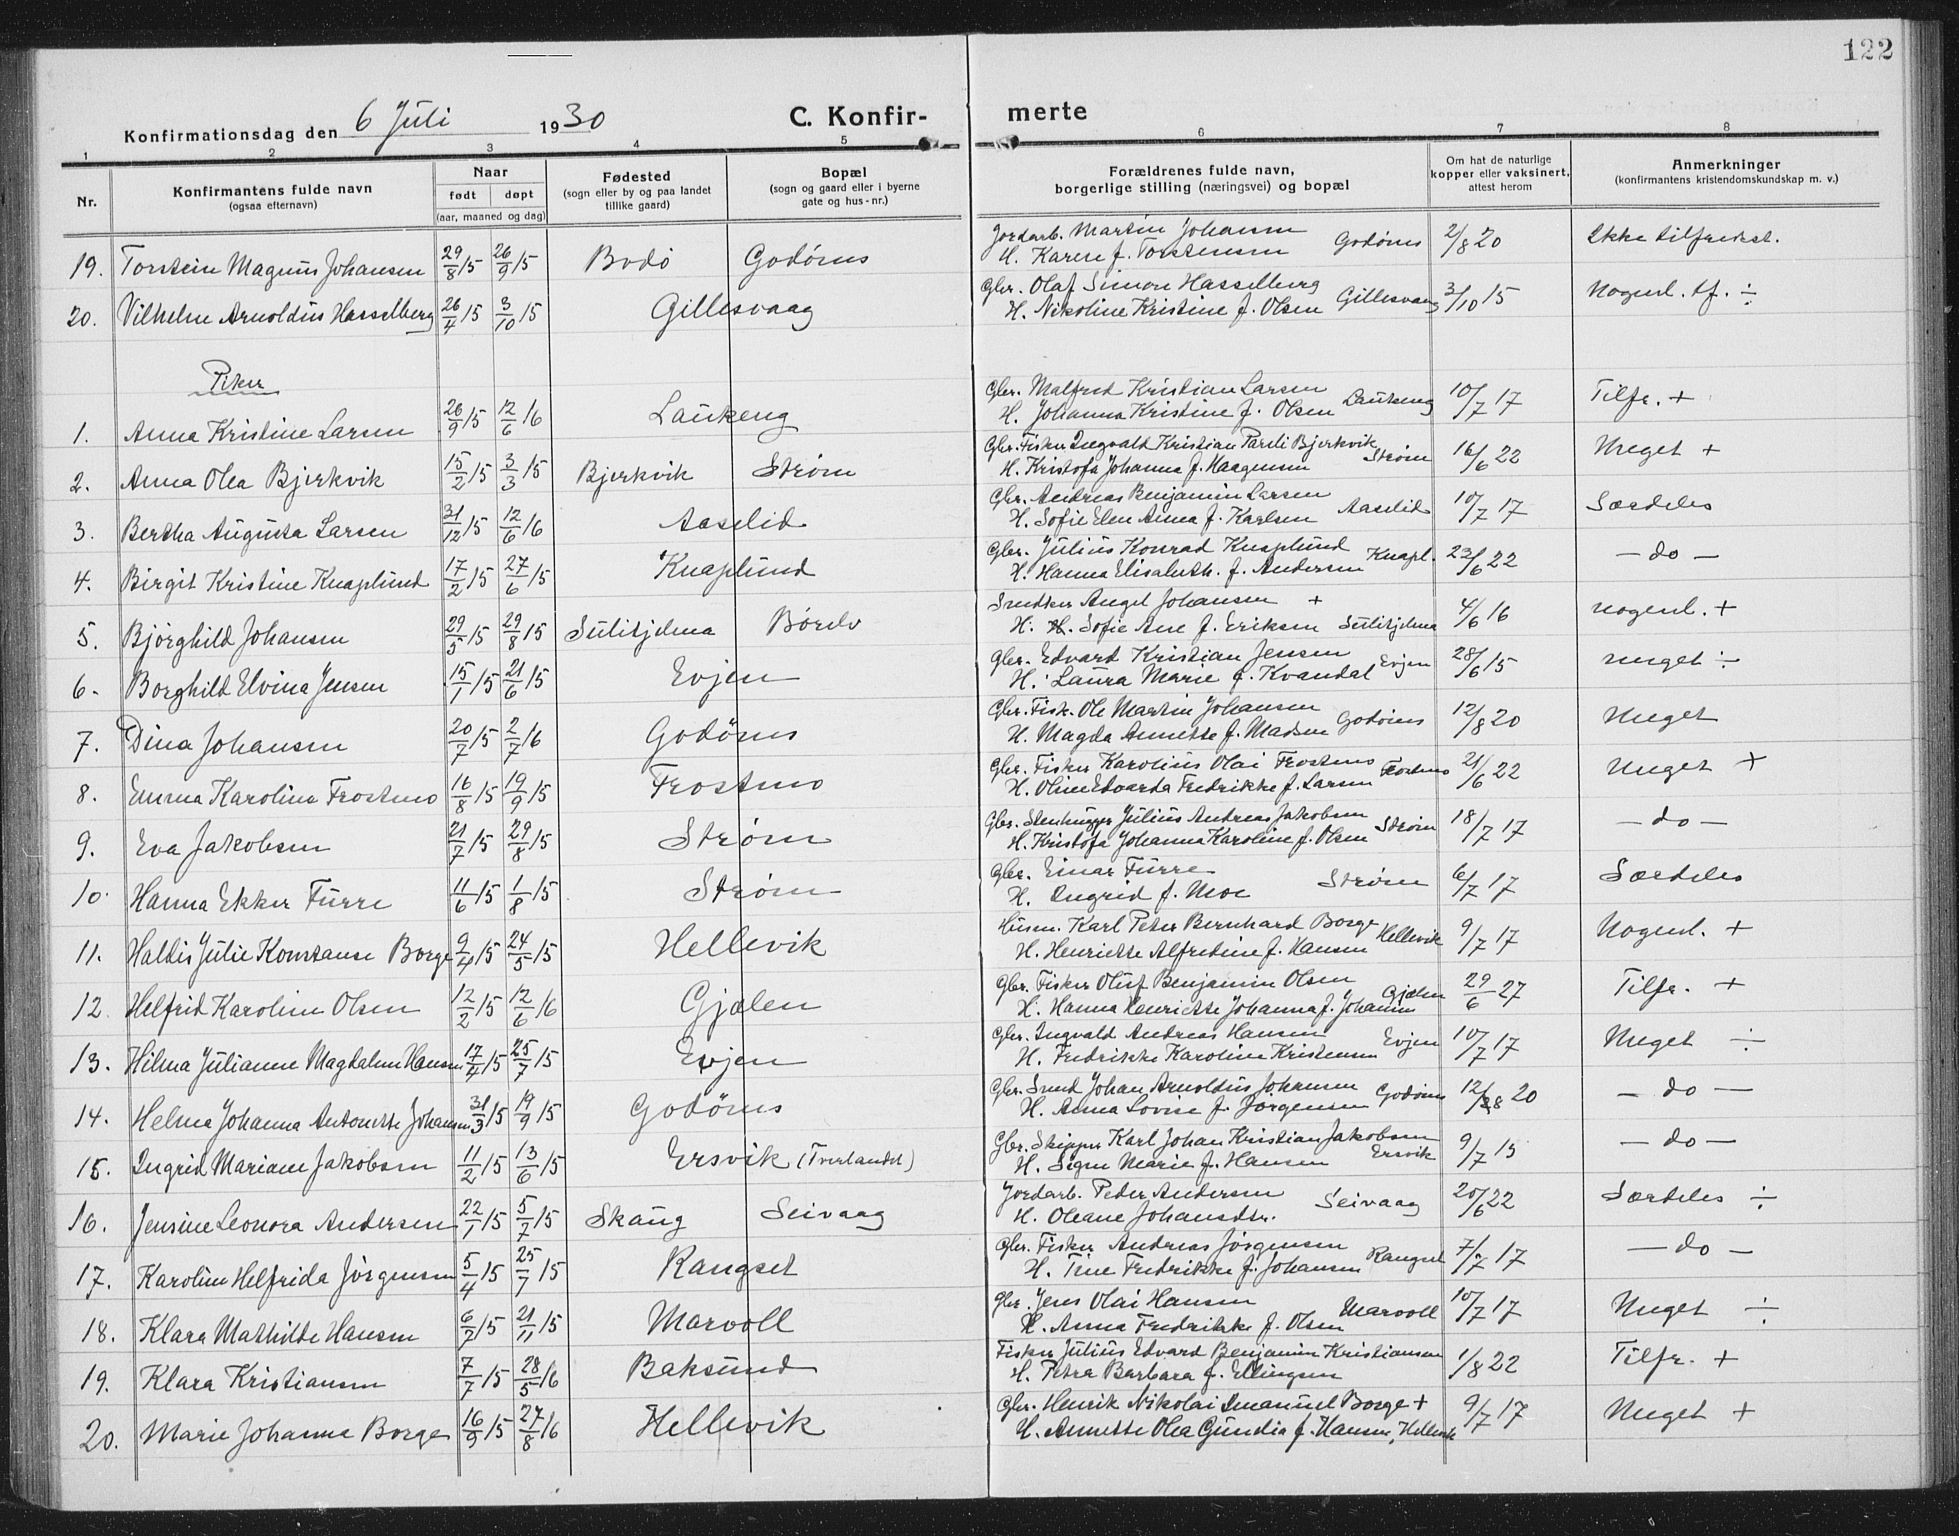 122
Konfirmationsdag den 6 Juli 1930 C. Konfir- merte
1 2 3 4 5 6 7 8
Nr. Konfirmantens fulde navn (ogsaa efternavn) Naar født døpt (aar, maaned og dag) Fødested (sogn eller by og paa landet tillike gaard) Bopæl (sogn og gaard eller i byerne gate og hus-nr.) Forældrenes fulde navn, borgerlige stilling (næringsvei) og bopæl Om hat de naturlige kopper eller vaksinert, attest herom Anmerkninger (konfirmantens kristendomskundskap m. v.)
19. Torstein Magnus Johansen 29/8 15 26/9 15 Bodö Godönes Jordarb. Martin Johansen H. Karen f. Torstensen Godönes 2/8 20 Ikke tilfredsst.
20. Vilhelm Arnoldus Hasselberg 26/4 15 3/10 15 Gillesvaag Gbr. Olaf Simon Hasselberg H. Nikoline Kristine f. Olsen Gillesvaag 3/10 15 Nogenl. tf. ÷
Piker
1. Anna Kristine Larsen 26/9 15 12/6 16 Laukeng Gbr. Malfred Kristian Larsen H. Johanna Kristine f. Olsen Laukeng 10/7 17 Tilfr. +
2. Anna Olea Bjerkvik 15/2 15 3/3 15 Bjerkvik Strøm Gbr. Fisker Ingvald Kristian Pareli Bjerkvik H. Kristofa Johanna f. Haagensen Strøm 16/6 22 Meget +
3. Bertha Augusta Larsen 31/12 15 12/6 16 Aaselid Gbr. Andreas Benjamin Larsen H. Sofie Elen Anna f. Karlsen Aaselid 10/7 17 Særdeles
4. Birgit Kristine Knaplund 17/2 15 27/6 15 Knaplund Gbr. Julius Konrad Knaplund H. Hanna Elisabeth. f. Andersen Knapl. 23/6 22 – do –
5. Bjørghild Johansen 29/5 15 29/8 15 Sulitjelma Børelv Snedker Angel Johansen + H. Sofie Ane f. Eriksen Sulitjelma 4/6 16 nogenl. +
6. Borghild Elvina Jensen 15/1 15 21/6 15 Evjen Gbr. Edvard Kristian Jensen H. Laura Marie f. Kvandal Evjen 28/6 15 meget ÷
7. Dina Johansen 20/7 15 2/7 16 Godönes Gbr. Fisk. Ole Martin Johansen H. Magda Annette f. Madsen Godönes 12/8 20 Meget
8. Emma Karoline Frostmo 16/8 15 19/9 15 Frostmo Gbr. Fisker Karolius Olai Frostmo H. Oline Edvarda Fredrikke f. Larsen Frostmo 21/6 22 Meget +
9. Eva Jakobsen 21/7 15 29/8 15 Strøm Gbr. Stenhugger Julius Andreas Jakobsen H. Kristofa Johanna Karoline f. Olsen Strøm 18/7 17 – do –
10. Hanna Ekker Furre 11/6 15 1/8 15 Strøm Gbr. Einar Furre H. Ingrid f. Moe Strøm 6/7 17 Særdeles
11. Haldis Julie Konstanse Borge 9/4 15 24/5 15 Hellevik Husm. Karl Peter Bernhard Borge H. Henriette Alfredine f. Hansen Hellevik 9/7 17 Nogenl. +
12. Helfrid Karoline Olsen 12/2 15 12/6 16 Gjælen Gbr. Fisker Oluf Benjamin Olsen H. Hanna Henriette Johanna f. Johansen Gjælen 29/6 27 Tilfr. +
13. Hilma Julianne Magdalene Hansen 17/4 15 25/7 15 Evjen Gbr. Ingvald Andreas Hansen H. Fredrikke Karoline Kristensen Evjen 10/7 17 Meget ÷
14. Helma Johanna Antonette Johansen 31/3 15 19/9 15 Godönes Gbr. Smed Johan Arnoldus Johansen H. Anna Lovise f. Jörgensen Godönes 12/8 20 – do –
15. Ingrid Mariane Jakobsen 11/2 15 13/6 15 Ersvik (Tverlandet) Gbr. Skipper Karl Johan Kristian Jakobsen H. Signe Marie f. Hansen Ersvik 9/7 15 – do –
16. Jensine Leonora Andersen 22/1 15 5/7 15 Skaug Seivaag Jordarb. Peder Andersen H. Oleane Johansdtr. Seivaag 20/6 22 Særdeles ÷
17. Karoline Helfrida Jörgensen 5/4 15 25/7 15 Rangset Gbr. Fisker Andreas Jörgensen H. Trine Fredrikke f. Johansen Rangset 7/7 17 – do –
18. Klara Mathilde Hansen 6/7 15 21/11 15 Marvoll Gbr. Jens Olai Hansen H. Anna Fredrikke f. Olsen Marvoll 10/7 17 Meget ÷
19. Klara Kristiansen 7/7 15 28/5 16 Baksund Fisker Julius Edvard Benjamin Kristiansen H. Petra Barbara f. Ellingsen 1/8 22 Tilfr. +
20. Marie Johanna Borge 16/9 15 27/8 16 Hellevik Gbr. Henrik Nikolai Emanuel Borge + H. Annette Olea Gundia f. Hansen, Hellevik 9/7 17 Meget +